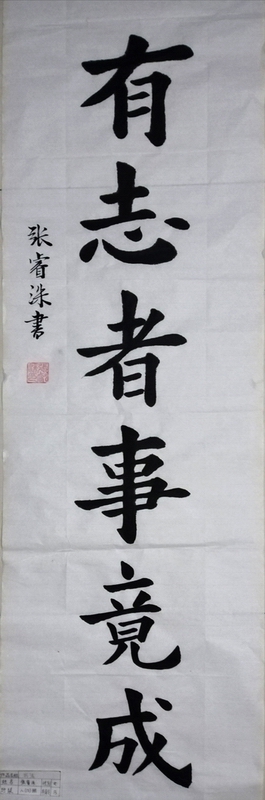 有志者事竟成
张睿洙书